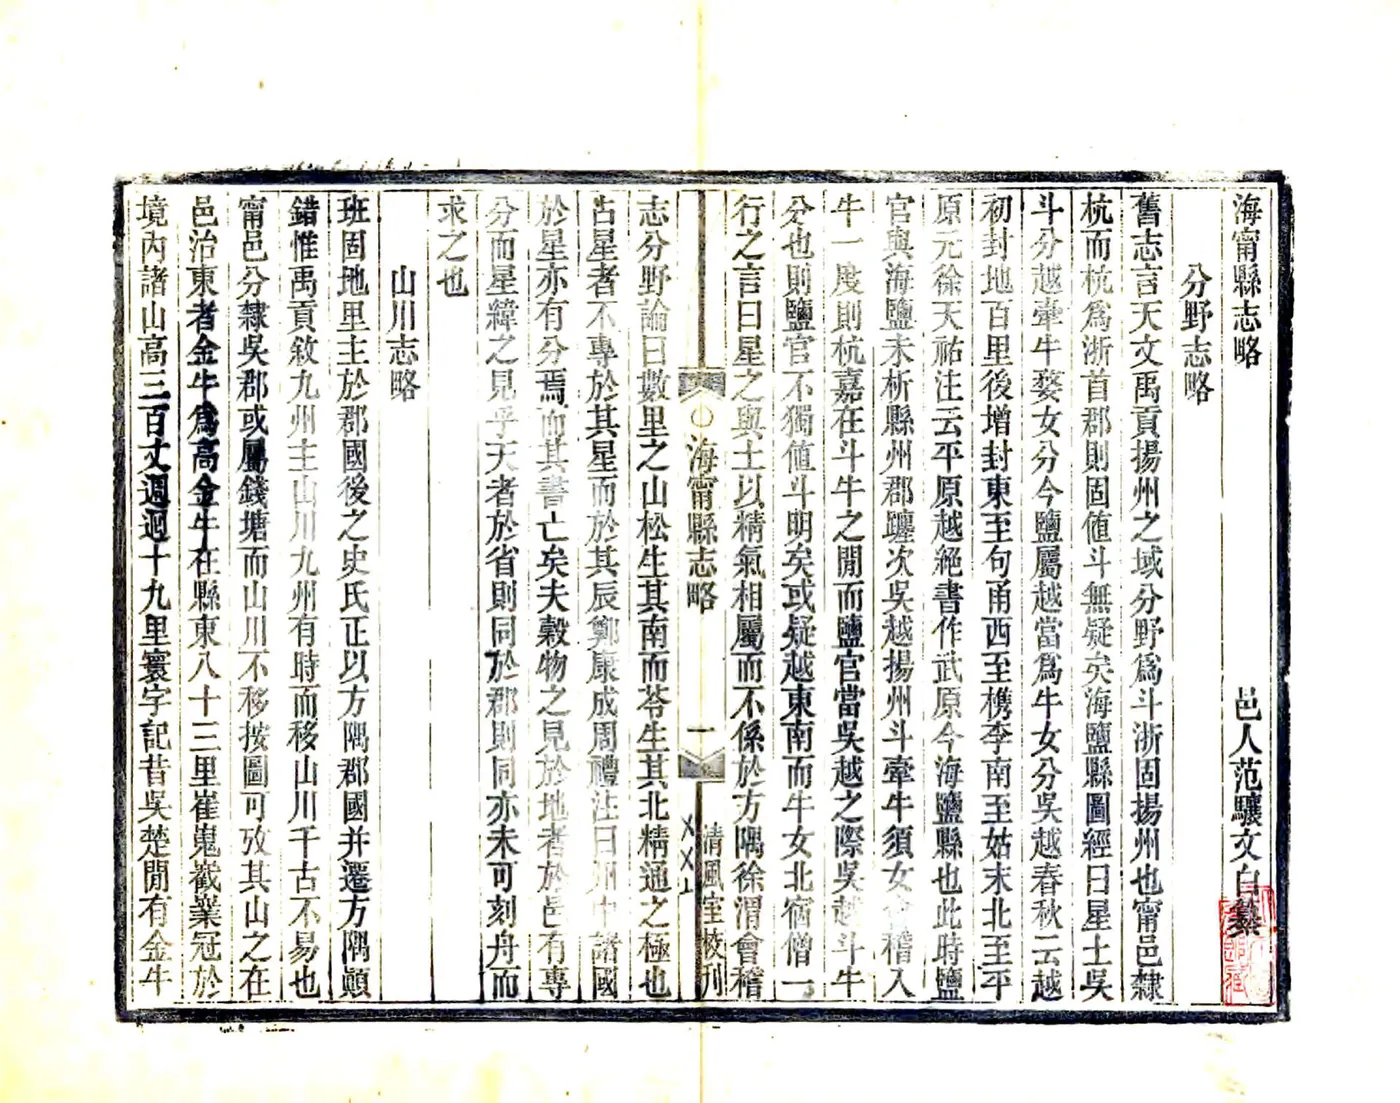 海甯縣志略 邑人范驤文白纂
分野志略
舊志言天文禹貢揚州之域分野爲斗浙固揚州也甯邑隸
杭而杭爲浙首郡則固値斗無疑矣海鹽縣圖經曰星土吳
斗分越牽牛婺女分今鹽屬越當爲牛女分吳越春秋云越
初封地百里後增封東至句甬西至檇李南至姑末北至平
原元徐天祐注云平原越絕書作武原今海鹽縣也此時鹽
官與海鹽未析縣州郡躔次吳越揚州斗牽牛須女會稽入
牛一度則杭嘉在斗牛之閒而鹽官當吳越之際吳越斗牛
分也則鹽官不獨値斗明矣或疑越東南而牛女北宿僧一
行之言曰星之與土以精氣相屬而不係於方隅徐渭會稽
海甯縣志略 一 清風室校刊
志分野論曰數里之山松生其南而苓生其北精通之極也
占星者不專於其星而於其辰鄭康成周禮注曰州中諸國
於星亦有分焉而其書亡矣夫穀物之見於地者於邑有專
分而星緯之見乎天者於省則同於郡則同亦未可刻舟而
求之也
山川志略
班固地里主於郡國後之史氏正以方隅郡國并遷方隅顚
錯惟禹貢敘九州主山川九州有時而移山川千古不易也
甯邑分隸吳郡或屬錢塘而山川不移按圖可攷其山之在
邑治東者金牛爲高金牛在縣東八十三里崔嵬嶻嶪冠於
境內諸山高三百丈週迴十九里寰宇記昔吳楚閒有金牛